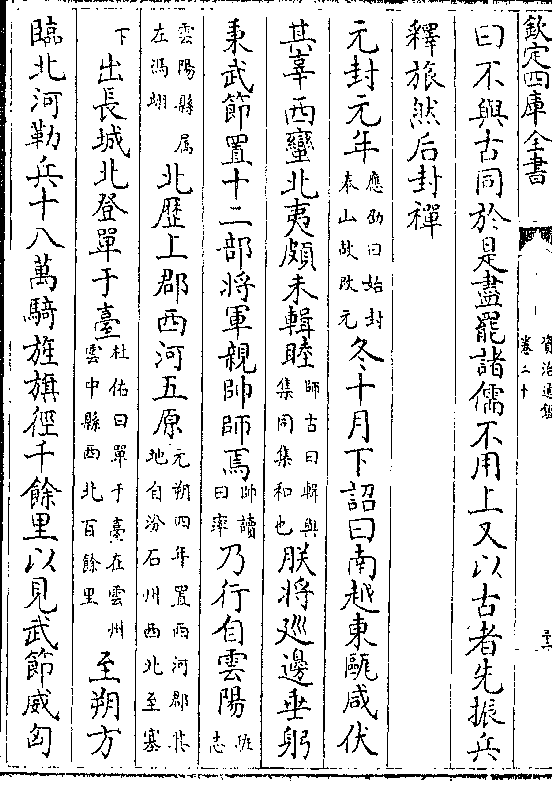 欽定四庫全書
資治通鑑
卷二十
曰不與古同於是盡罷諸儒不用上又以古者先振兵
釋旅然后封禪
元封元年應劭曰始封泰山故改元冬十月下詔曰南越東甌咸伏
其辜西蠻北夷頗未輯睦師古曰輯與集同集和也朕將廵邊垂躬
秉武節置十二部將軍親帥師焉帥讀曰率乃行自雲陽班志
雲陽縣屬左馮翊北歴上郡西河五原元朔四年置西河郡其地自汾石州西北至塞
下出長城北登單于臺杜佑曰單于臺在雲州雲中縣西北百餘里至朔方
臨北河勒兵十八萬騎旌旗徑千餘里以見武節威匈